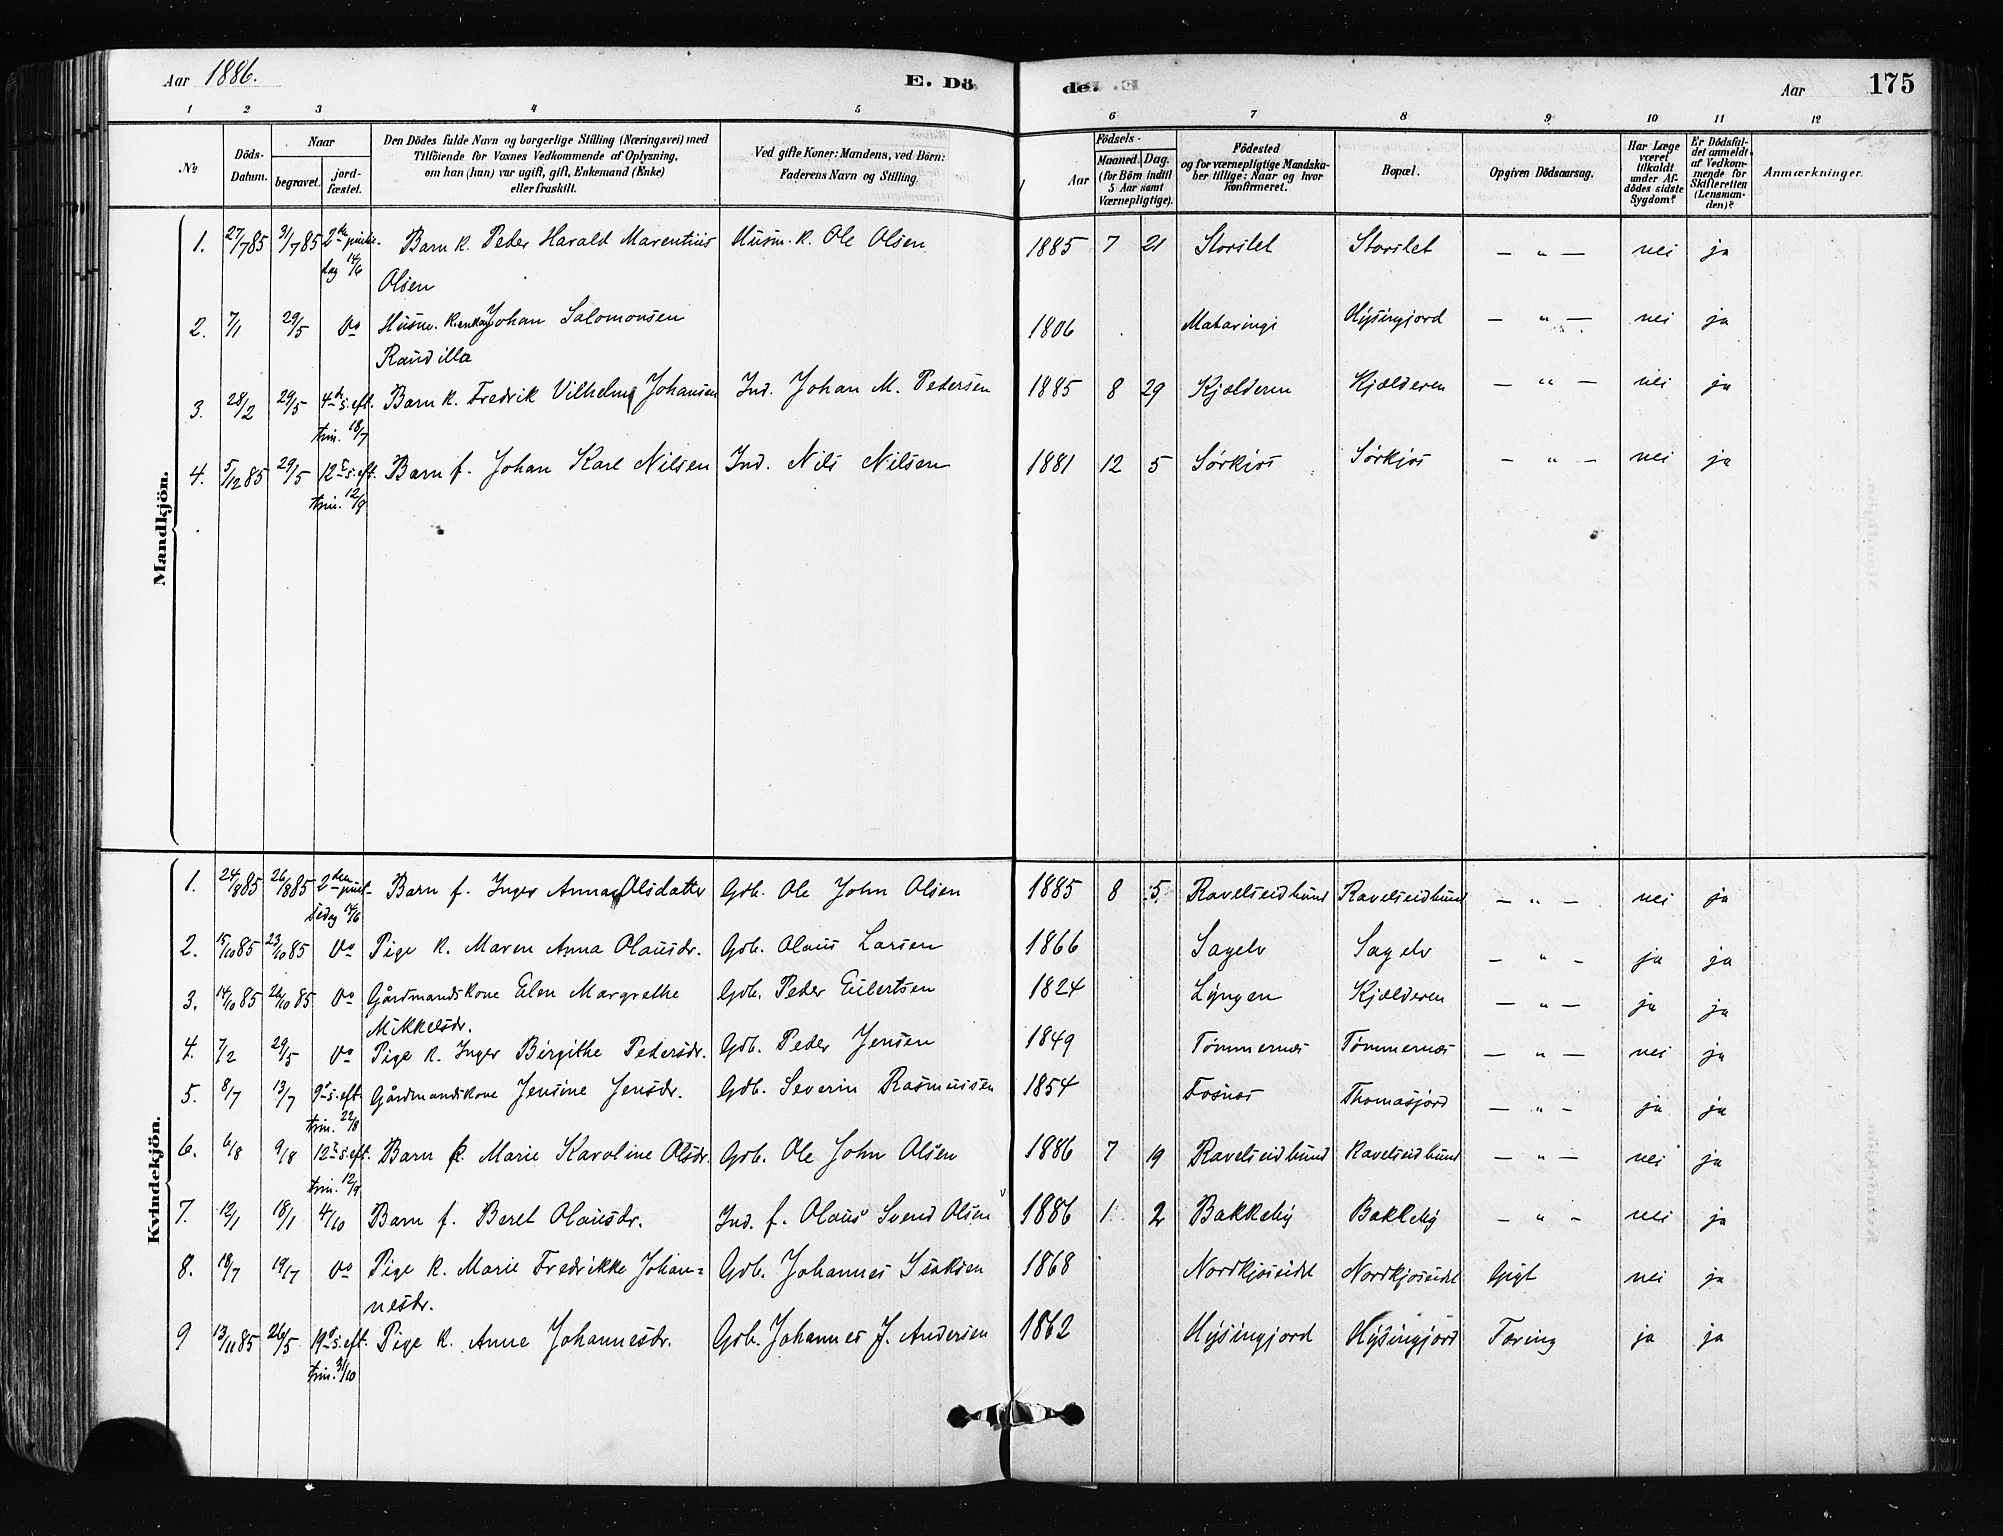 Aar 1886.
E. Dö
de.
Aar
175
1 2 3 4 5 6 7 8 9 10 11 12
No
Döds-Datum.
Naar
begravet.
jord-fæstet.
Den Dödes fulde Navn og borgerlige Stilling (Næringsvei) med
Tilföiende for Voxnes Vedkommende af Oplysning,
om han (hun) var ugift, gift, Enkemand (Enke)
eller fraskilt.
Ved gifte Koner: Mandens, ved Börn:
Faderens Navn og Stilling.
Födsels-
Aar
Maaned. Dag.
(for Börn indtil
5 Aar samt
Værnepligtige).
Födested
og for værnepligtige Mandska-
ber tillige: Naar og hvor
konfirmeret.
Bopæl.
Opgiven Dödsaarsag.
Har Læge
været
tilkaldt
under Af-
dödes sidste
Sygdom?
Er Dödsfal-
det anmeldt
af Vedkom-
mende for
Skifteretten
(Lensman-
den)?
Anmærkninger.
Mandkjön.
1. 27/7 85 31/7 85 2den pinse- Barn k. Peder Harald Marentius Husm. k. Ole Olsen 1885 7 21 Storslet Storslet — " — nei ja
dag 14/6 Olsen
2. 7/1 29/5 do Husm. k. enkem. Johan Salomonsen 1806 Mataringi Hysingjord — " — nei ja
Raudilla
3. 28/2 29/5 4de s. eft. Barn k. Fredrik Vilhelm Johansen Ind. Johan M. Pedersen 1885 8 29 Kjælderen Kjælderen — " — nei ja
trin. 18/7
4. 5/12 85 29/5 12te s. eft. Barn f. Johan Karl Nilsen Ind. Nils Nilsen 1881 12 5 Sørkjos Sørkjos — " — nei ja
trin. 12/9
Kvindekjön.
1. 24/8 85 26/8 85 2den pint- Barn f. Inger Anna Olsdatter Gdb. Ole John Olsen 1885 8 5 Ravelseidbund Ravelseidbund — " — nei ja
sedag 14/6
2. 15/10 85 23/10 85 do Pige k. Maren Anna Olausdr. Gdb. Olaus Larsen 1866 Sagelv Sagelv — " — ja ja
3. 14/10 85 26/10 85 do Gårdmandskone Elen Margrethe Gdb. Peder Eilertsen 1824 Lyngen Kjælderen — " — ja ja
Mikkelsdr.
4. 7/2 29/5 do Pige k. Inger Birgithe Pedersdr. Gdb. Peder Jensen 1849 Tømmernes Tømmernes — " — nei ja
5. 8/7 13/7 9de s. eft. Gårdmandskone Jensine Jensdr. Gdb. Severin Rasmussen 1854 Fosnes Thomasjord — " — ja ja
trin. 22/8
6. 6/8 9/8 12te s. eft. Barn k. Marie Karoline Olsdr. Gdb. Ole John Olsen 1886 7 19 Ravelseidbund Ravelseidbund — " — nei ja
trin. 12/9
7. 12/1 18/1 4/10 Barn f. Beret Olausdr. Ind. f. Olaus Svend Olsen 1886 1 2 Bakkeby Bakkeby — " — nei ja
8. 10/7 19/7 do Pige k. Marie Fredrikke Johan= Gdb. Johannes Isaksen 1868 Nordkjoseidet Nordkjoseidet Gigt nei ja
nesdr.
9 13/11 85 26/5 19de s. eft. Pige k. Anne Johannesdr. Gdb. Johannes J. Andersen 1862 Hysingjord Hysingjord Tæring ja ja
trin. 31/10